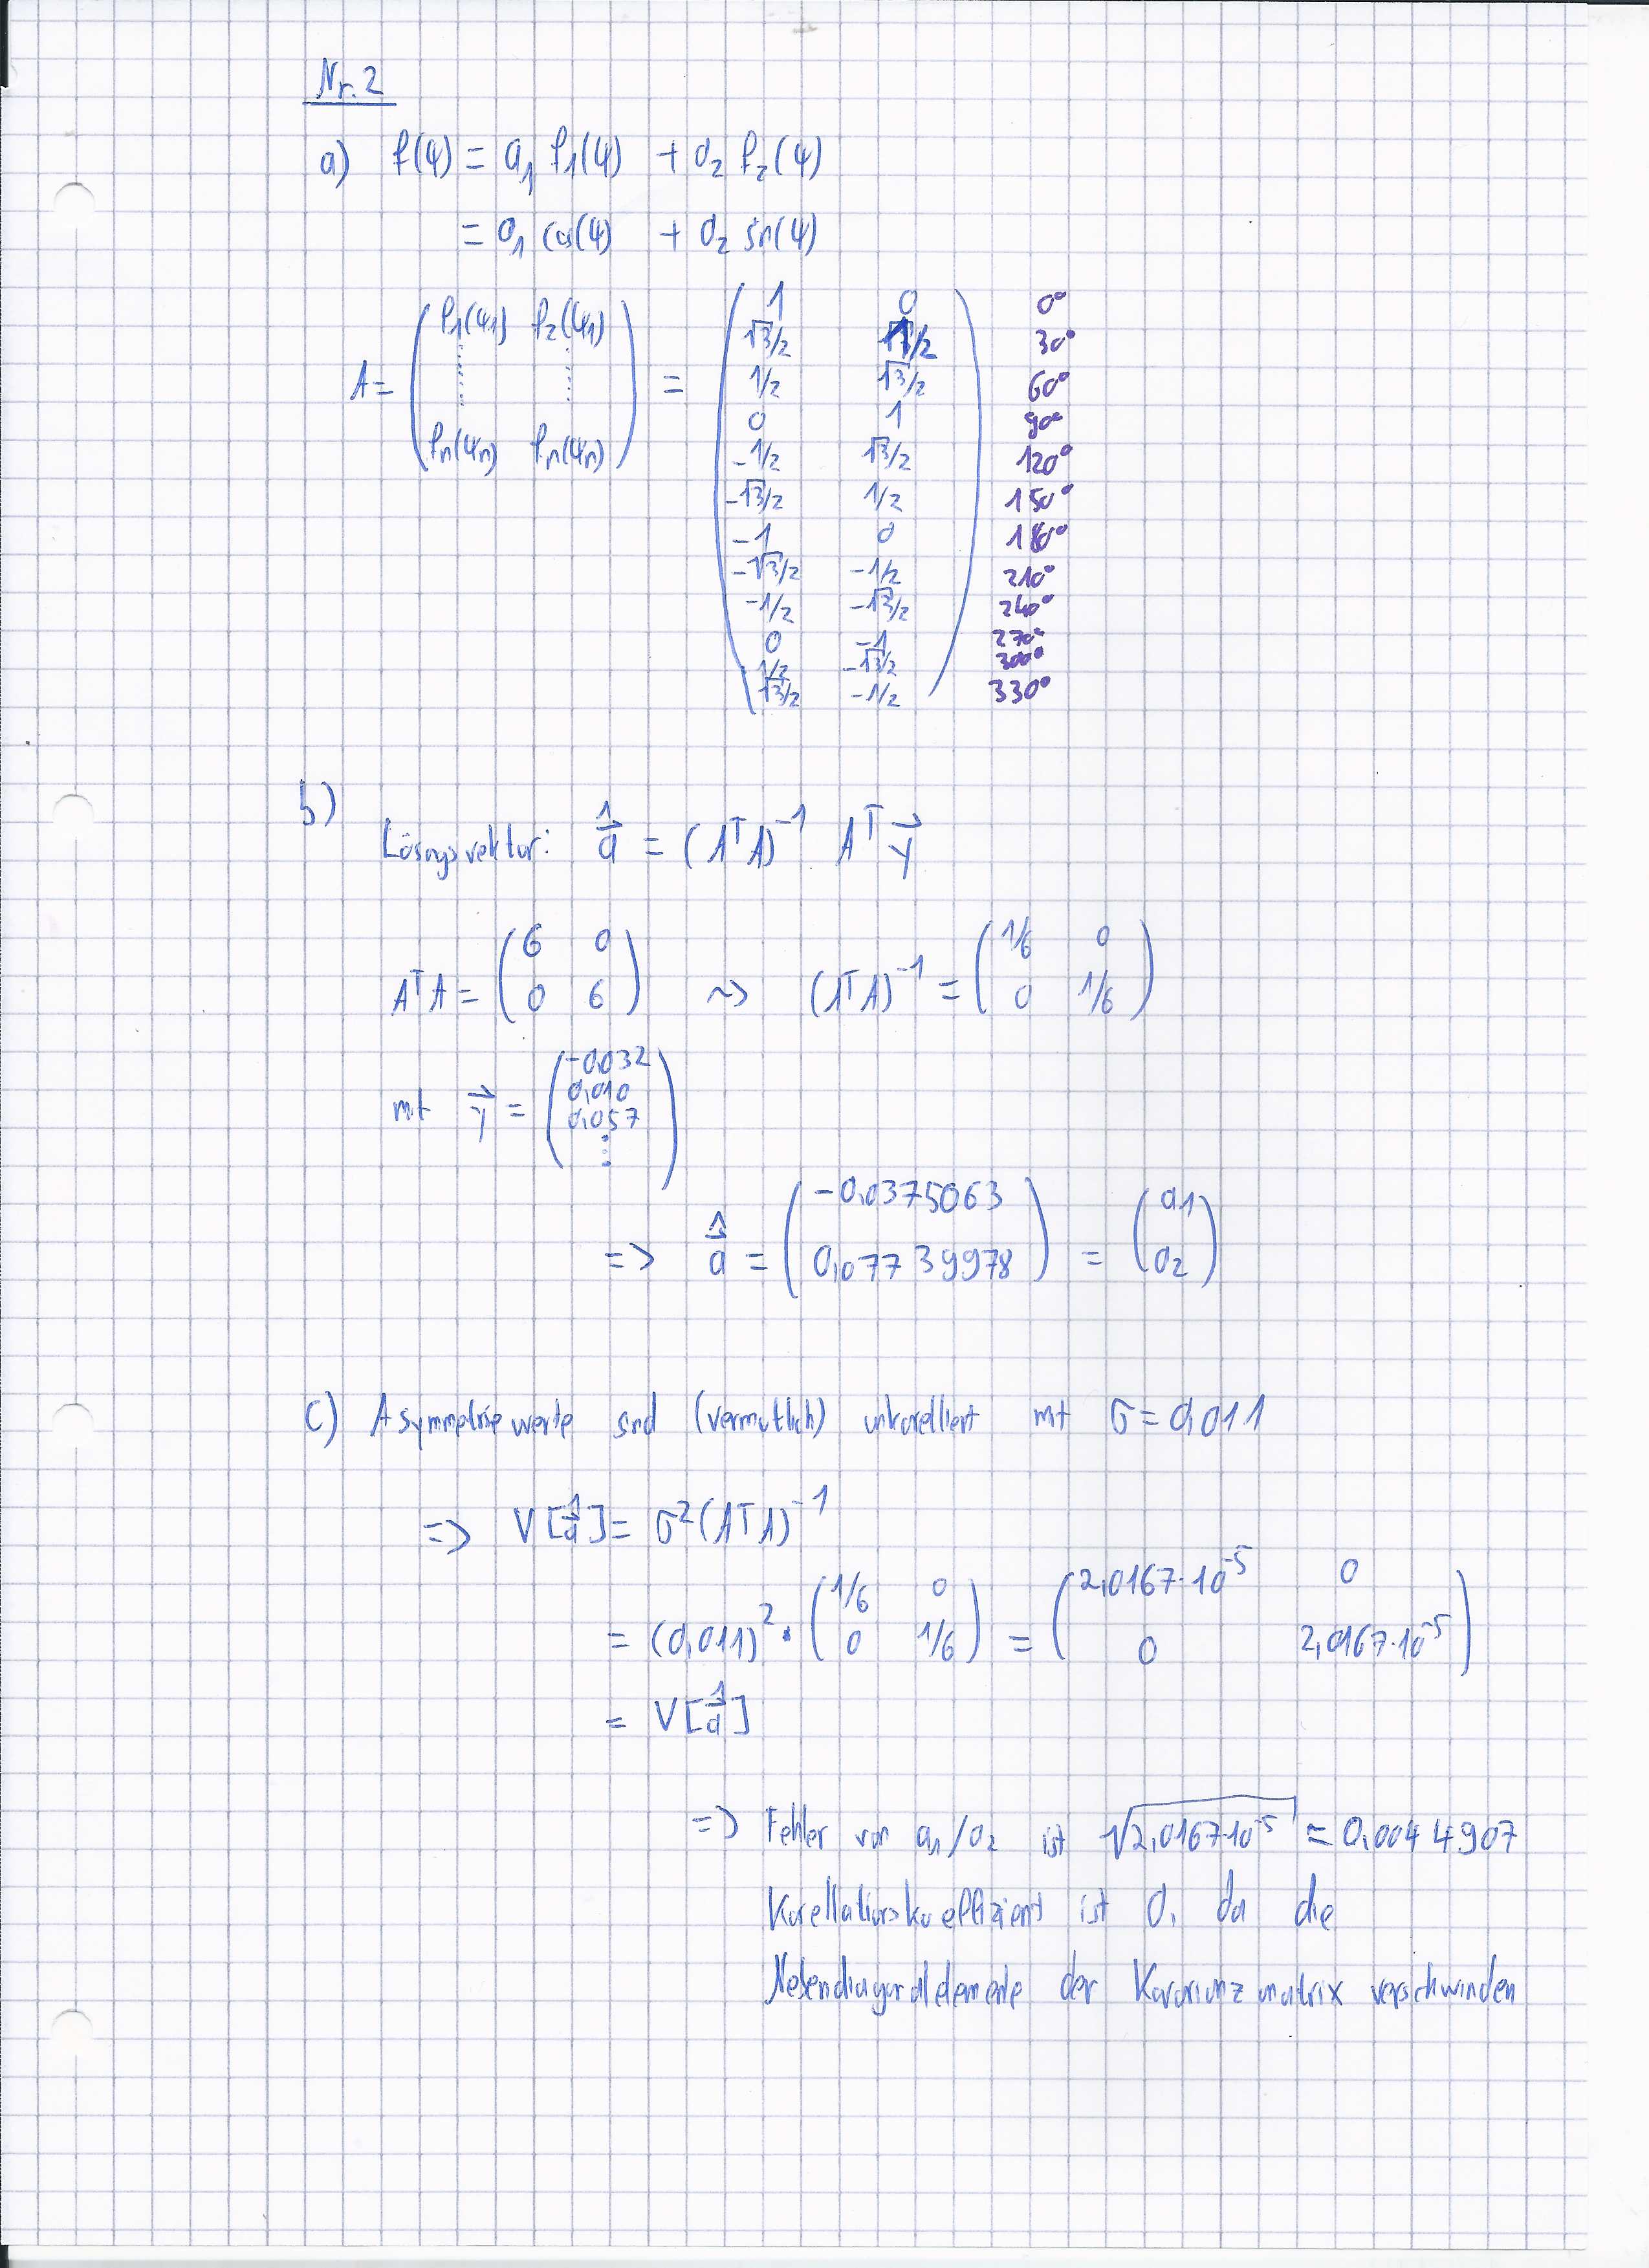 Nr. 2
a) f(ψ) = a₁ f₁(ψ) + a₂ f₂(ψ)
= a₁ cos(ψ) + a₂ sin(ψ)
A = ( f₁(ψ₁) f₂(ψ₁) ⋮ ⋮ fₙ(ψₙ) fₙ(ψₙ) ) =
1 0 0°
√3/2 1/2 30°
1/2 √3/2 60°
0 1 90°
-1/2 √3/2 120°
-√3/2 1/2 150°
-1 0 180°
-√3/2 -1/2 210°
-1/2 -√3/2 240°
0 -1 270°
1/2 -√3/2 300°
√3/2 -1/2 330°
b)
Lösungsvektor: â = (AᵀA)⁻¹ Aᵀ y⃗
AᵀA = ( 6 0 0 6 ) ⇝ (AᵀA)⁻¹ = ( 1/6 0 0 1/6 )
mit y⃗ = ( -0,032 0,010 0,057 ⋮ )
=> â = ( -0,0375063 0,07739978 ) = ( a1 a2 )
c) Asymmetriewerte sind (vermutlich) unkorelliert mit σ = 0,011
=> V[â] = σ²(AᵀA)⁻¹
= (0,011)² · ( 1/6 0 0 1/6 ) = ( 2,0167·10⁻⁵ 0 0 2,0167·10⁻⁵ )
= V[â]
=> Fehler von a₁/a₂ ist √2,0167·10⁻⁵ = 0,0044907
Korellationskoeffizient ist 0, da die
Nebendiagonalelemente der Kovarianzmatrix verschwinden